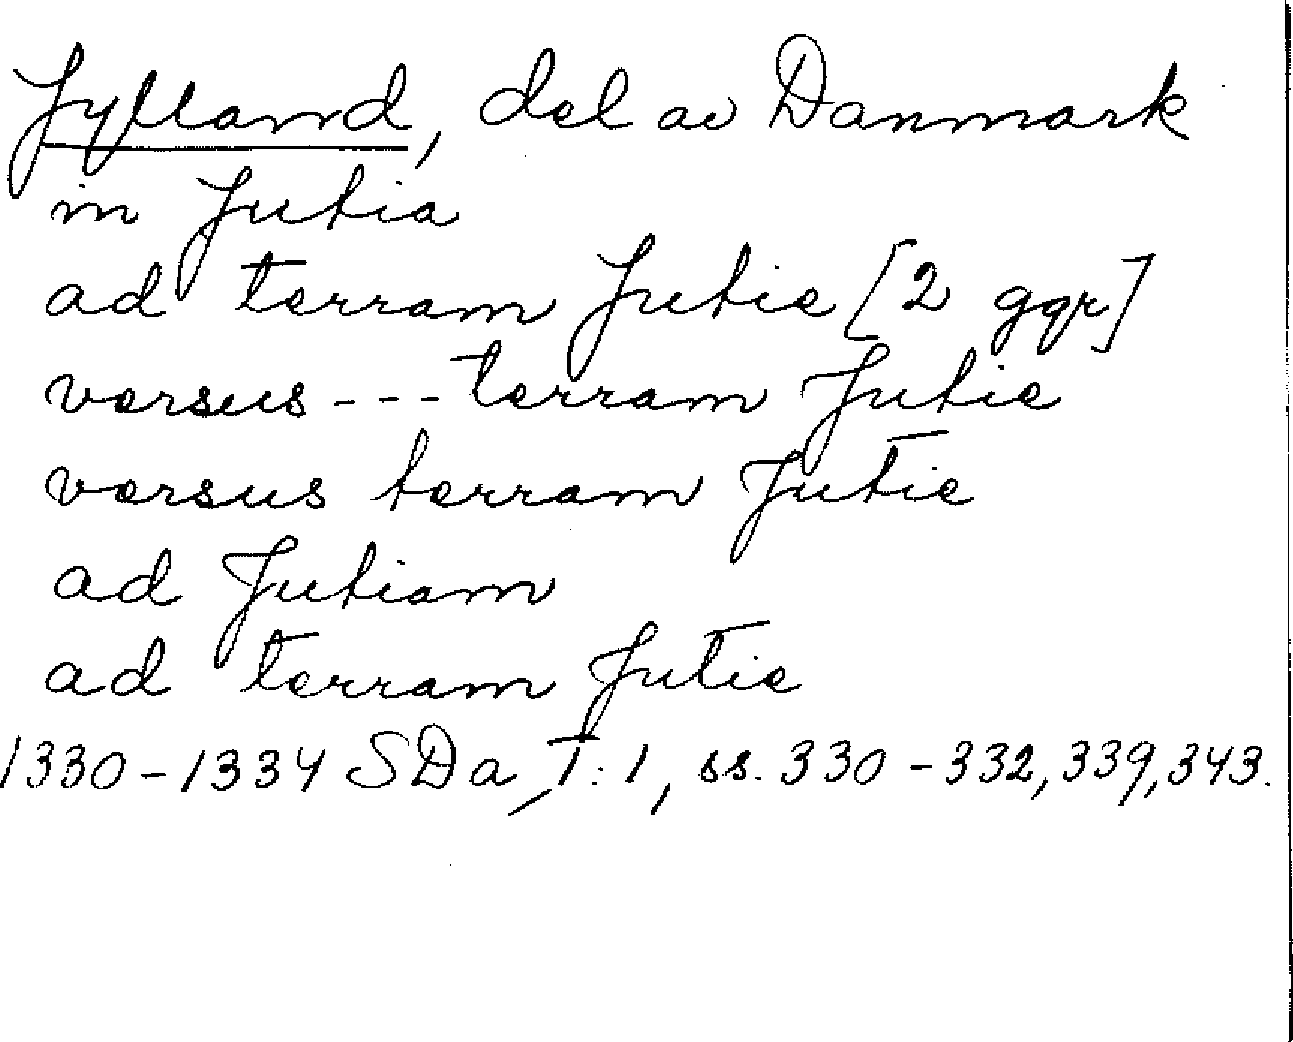 Jylland, del av Danmark
in Jutia
ad terram Jutie [2 ggr]
versus --- terram Jutie
versus terram Jutie
ad Jutiam
ad terram Jutie
1330-1334 SDa, T: 1, ss. 330-332, 339, 343.